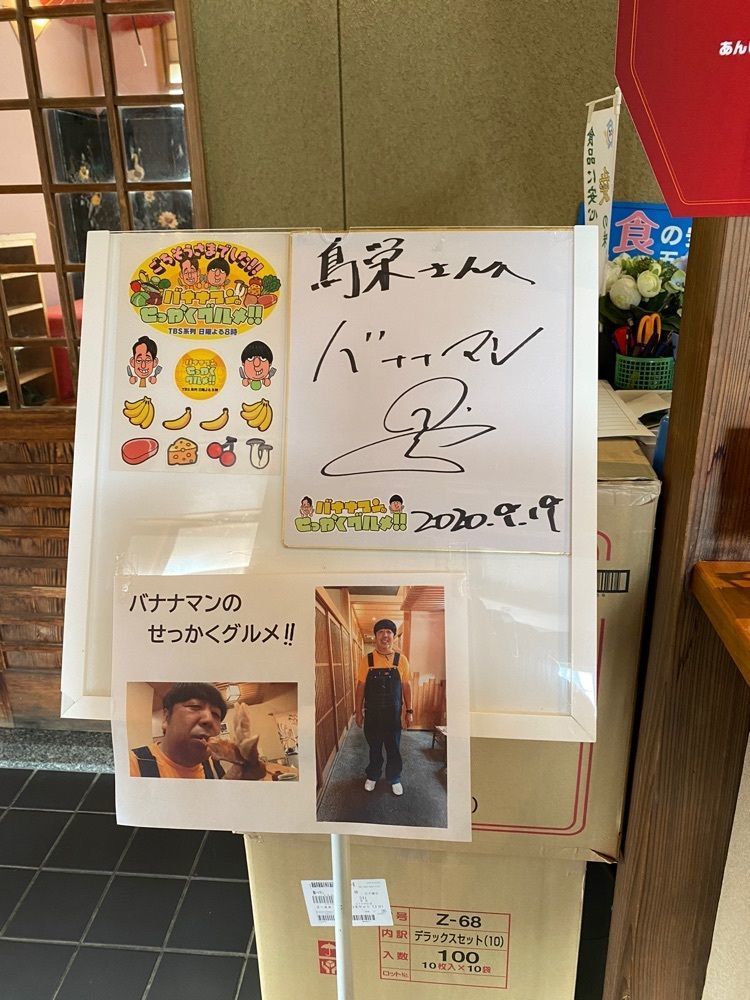 あん
食品に安心
愛の味
食の安
ごちそうさまでした!!
バナナマンの
せっかくグルメ!!
TBS系列 日曜よる8時
バナナマンの
せっかく
グルメ!!
鳥栄さんへ
バナナマン
バナナマンの
せっかくグルメ!!
2020.9.19
バナナマンの
せっかくグルメ!!
号 Z-68
内訳 デラックスセット(10)
入数 100
10枚入×10袋
ロット№